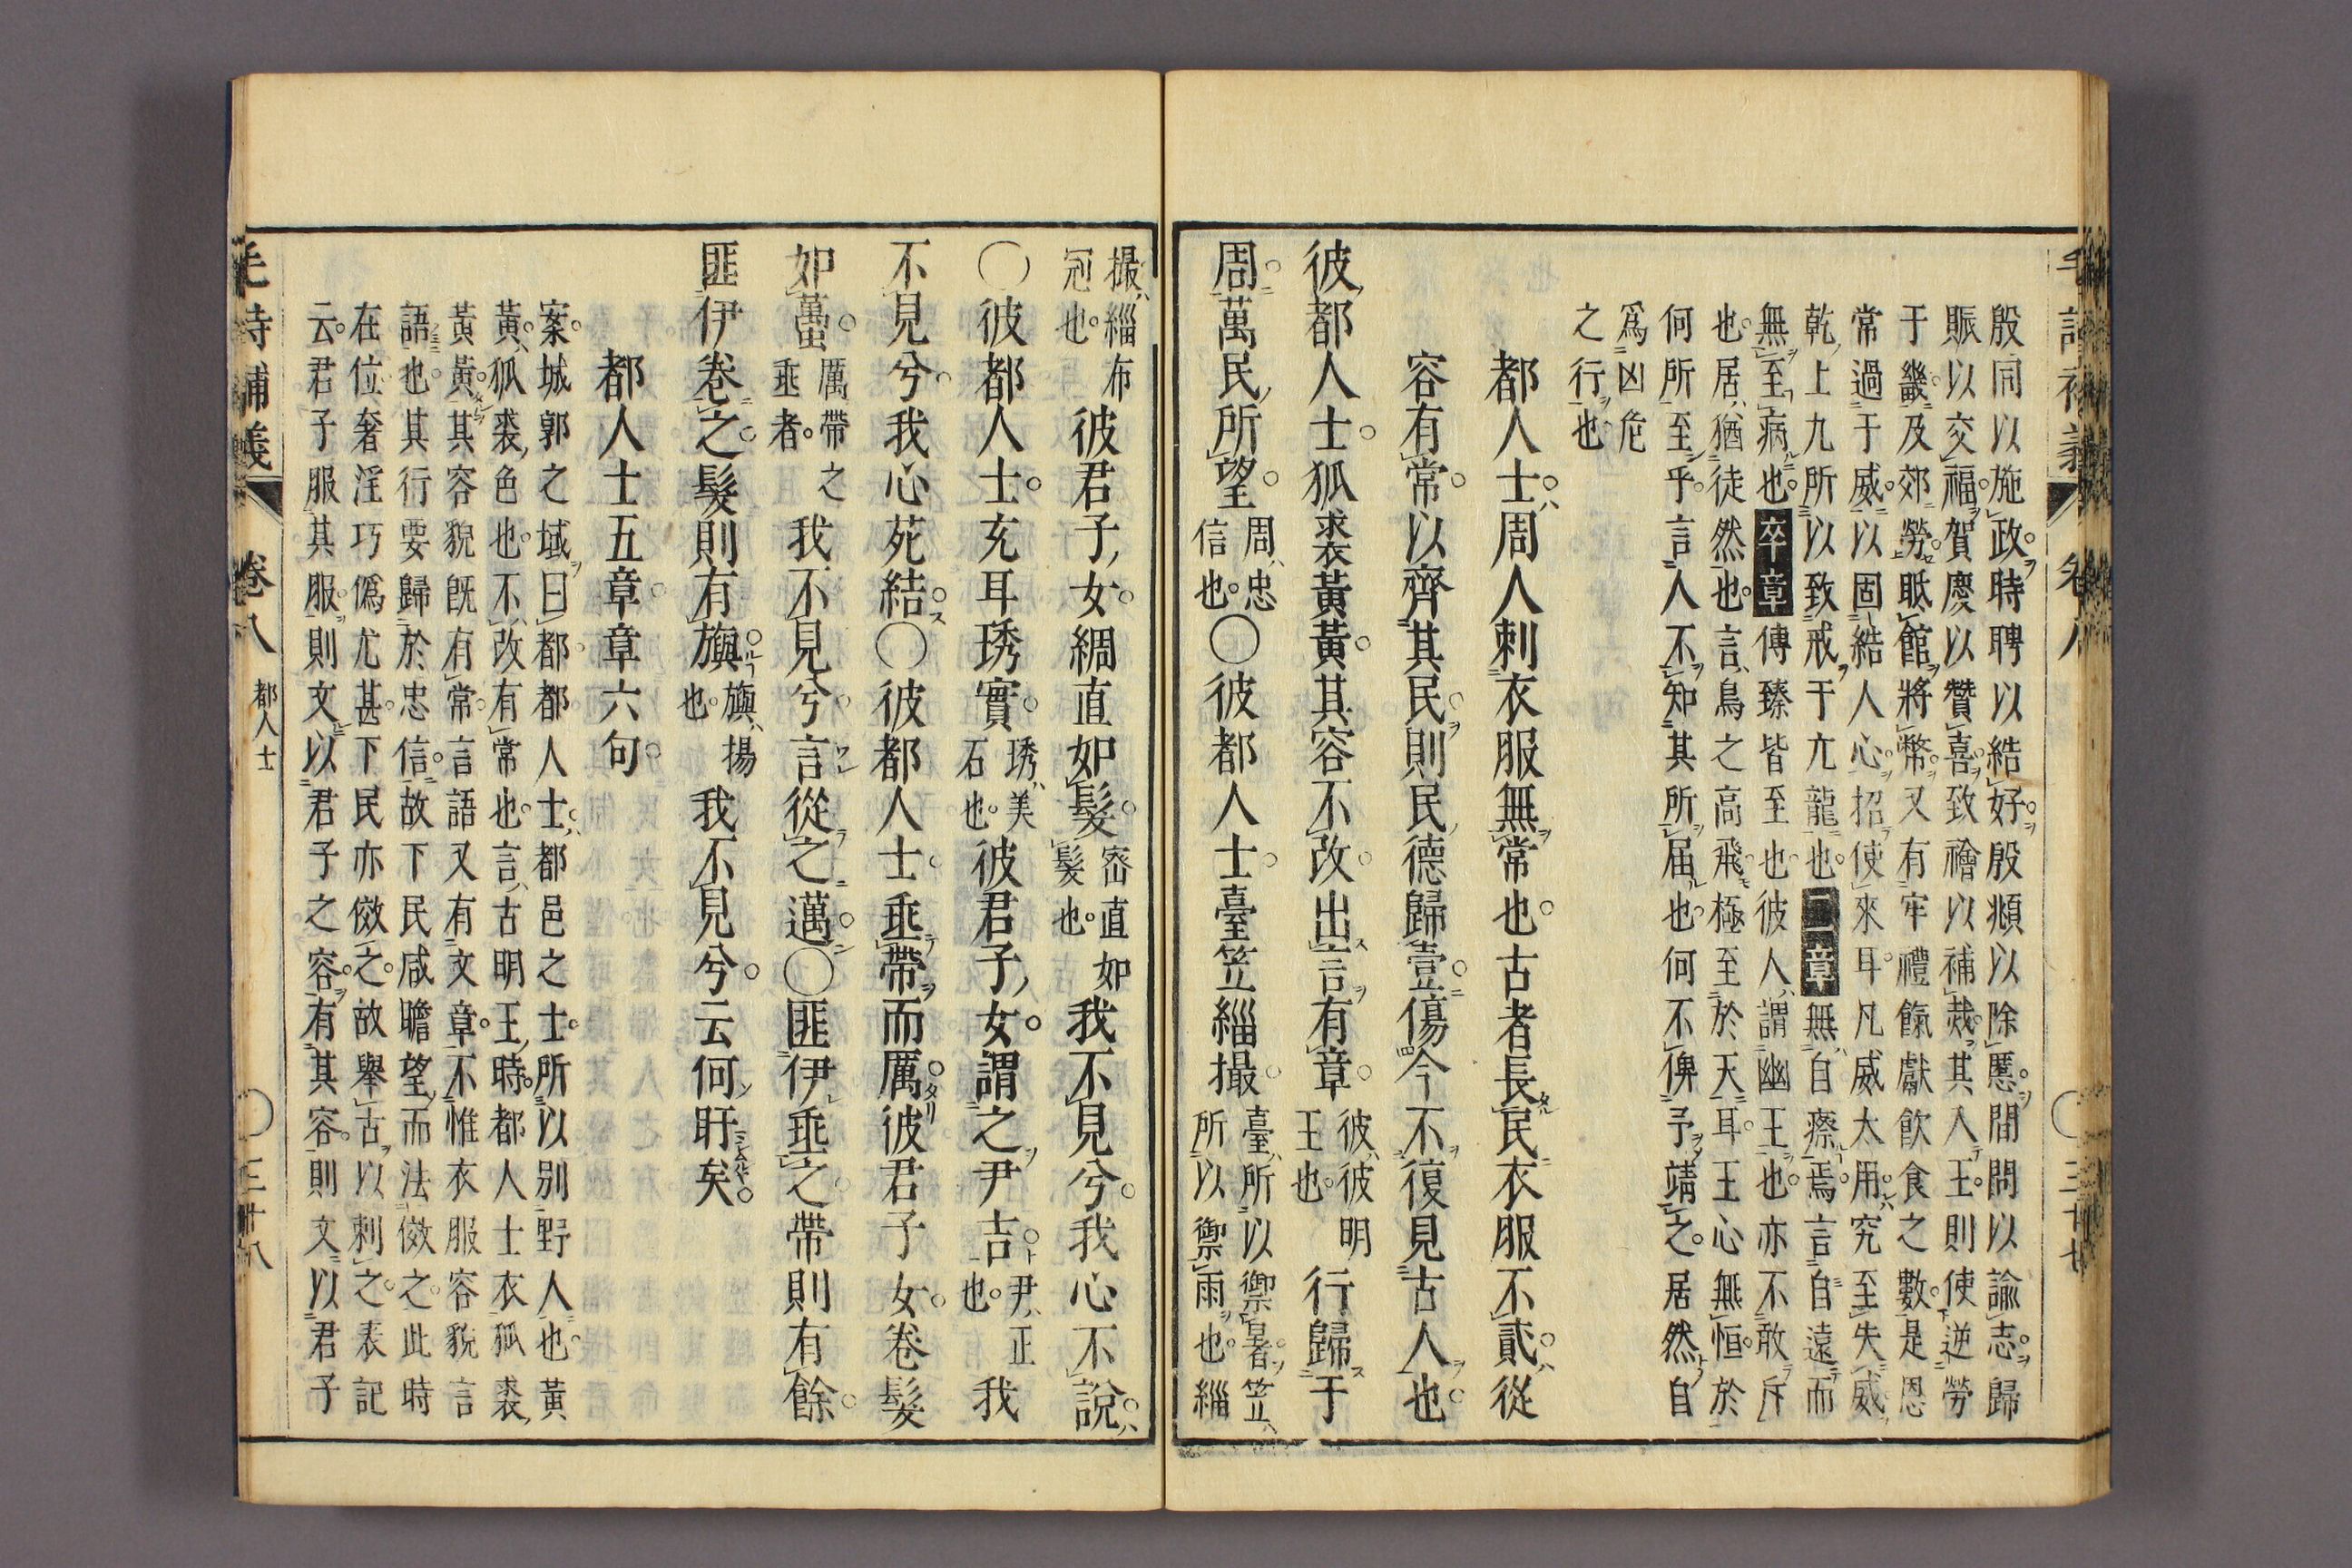 毛詩補義 卷八 三十七
殷同以施政時聘以結好殷頫以除慝間問以諭志歸
賑以交福賀慶以贊喜致禬以補烖其入王則使逆勞
于畿及郊勞眂館將幣又有牢禮餼獻飲食之數是恩
常過于威以固結人心招使來耳凡威太用究至失威
乾上九所以致戒于亢龍也二章無自瘵焉言自遠而
無至病也卒章傳臻皆至也彼人謂幽王也亦不敢斥
也居猶徒然也言鳥之高飛極至於天耳王心無恒於
何所至乎言人不知其所届也何不俾予靖之居然自
爲凶危
之行也
都人士周人刺衣服無常也古者長民衣服不貳從
容有常以齊其民則民德歸壹傷今不復見古人也
彼都人士狐裘黃黃其容不改出言有章彼彼明王也行歸于
周萬民所望周忠信也○彼都人士臺笠緇撮臺所以禦暑笠所以禦雨也緇
撮緇布冠也彼君子女綢直如髮密直如髮也我不見兮我心不說
○彼都人士充耳琇實琇美石也彼君子女謂之尹吉尹正也我
不見兮我心苑結○彼都人士垂帶而厲彼君子女卷髮
如蠆厲帶之垂者我不見兮言從之邁○匪伊垂之帶則有餘
匪伊卷之髮則有旟旟揚也我不見兮云何盱矣
都人士五章章六句
案城郭之域曰都都人士都邑之士所以別野人也黃
黃狐裘色也不改有常也言古明王時都人士衣狐裘
黃黃其容貌既有常言語又有文章不惟衣服容貌言
語也其行要歸於忠信故下民咸瞻望而法傚之此時
在位奢淫巧僞尤甚下民亦傚之故舉古以刺之表記
云君子服其服則文以君子之容有其容則文以君子
毛詩補義 卷八 都人士 三十八